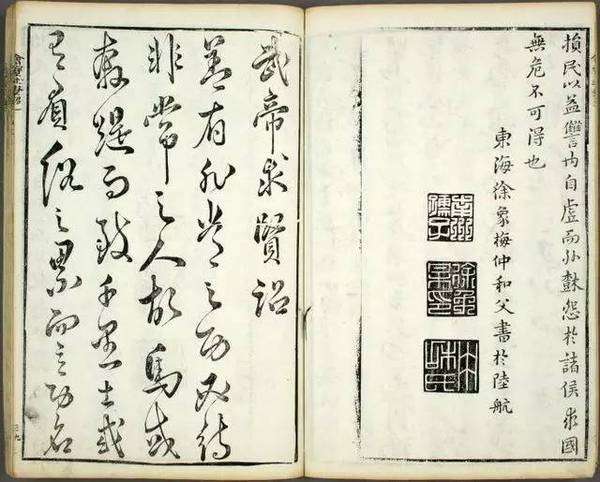 損民以益讐内自虛而外樹怨於諸侯求國
無危不可得也
東海徐象梅仲和父書於陸航
南州孺子
徐象梅印
武帝求賢詔
蓋有非常之功必待
非常之人故馬或
奔踶而致千里士或
有負俗之累而立功名